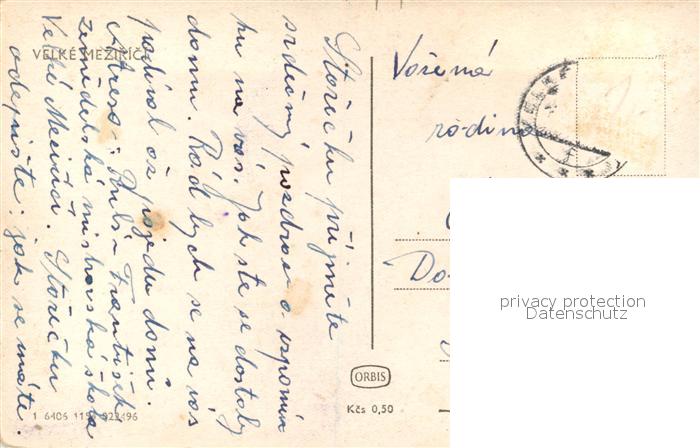 VELKÉ MEZIŘÍČÍ
Stařičku přijměte
srdečný pozdrav a vzpomín
ku na vás. Jak ste se dostaly
domu. Rád bych se na vás
podíval až pojedu domu.
Adresa: František
zemědelská mistrovská škola
Velké Meziříčí. Stařičku
odepište: jak se máte.
1 6406 1159 022496
Vážená
rodina
Do
ORBIS
Kčs 0,50
privacy protection
Datenschutz